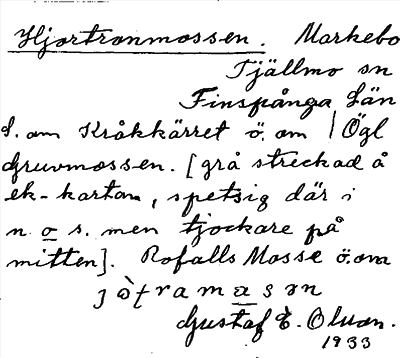 Hjortronmossen. Markebo
Tjällmo sn
Finspånga Län
S. om Kråkkärret ö. om | Ögl
Gruvmossen. [grå streckad å
ek-kartan, spetsig där i
n o s. men tjockare på
mitten]. Rofalls Mosse ö.om
Gustaf E. Olson.
1933